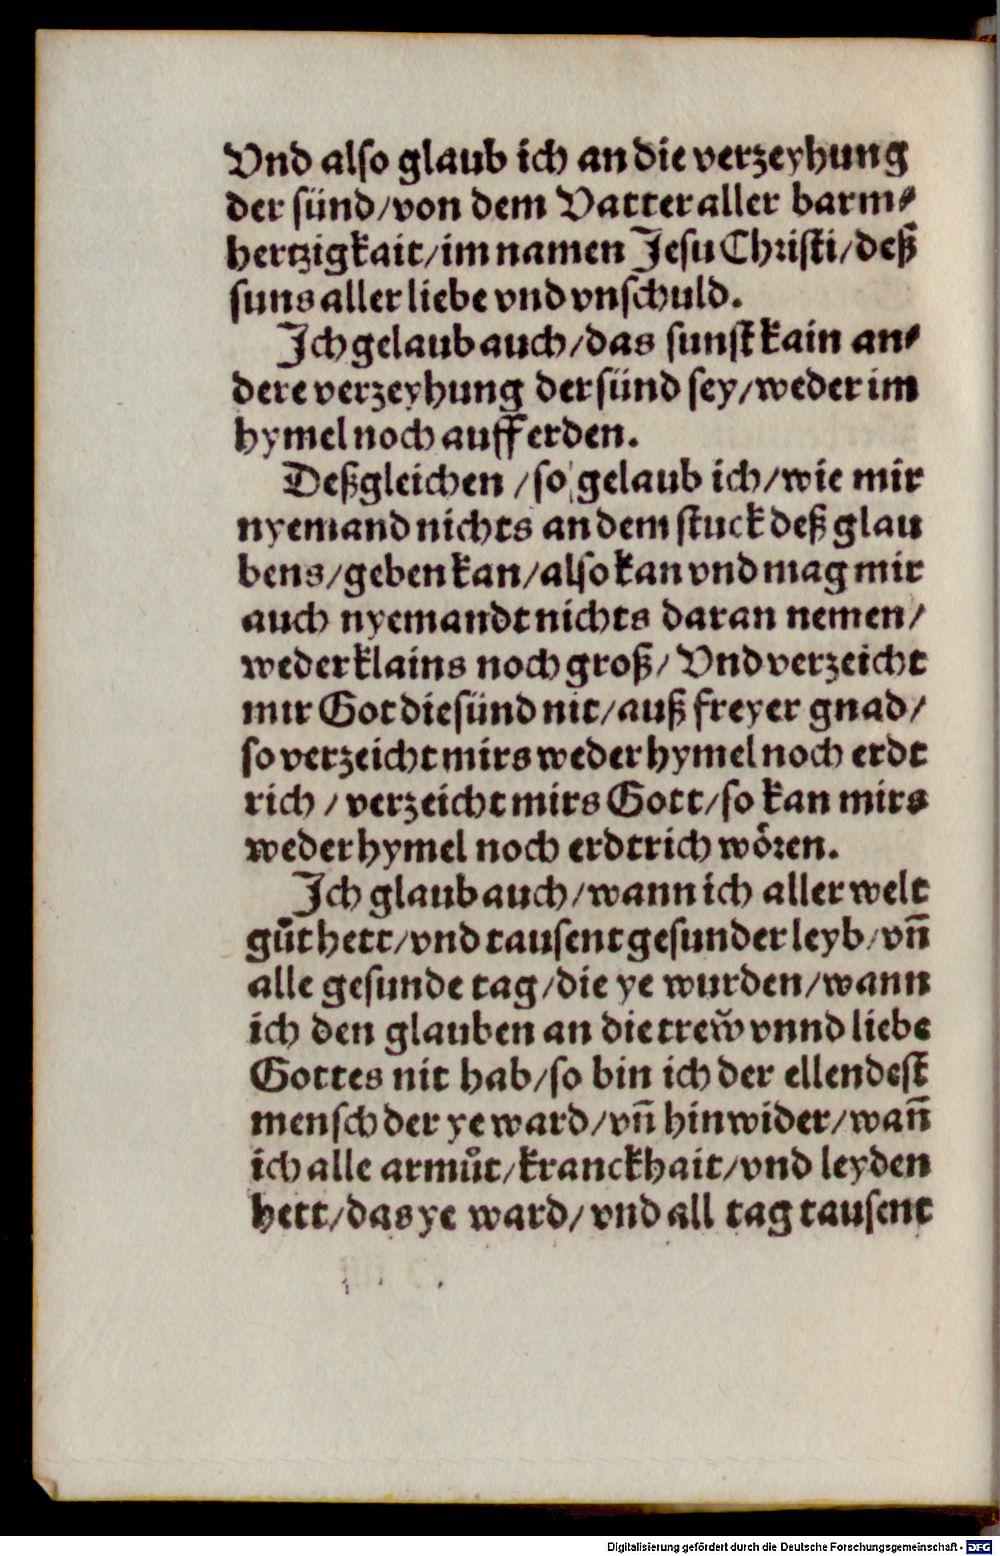 Vnd also glaub ich an die verzeyhung
der sünd/von dem Vatter aller barm⸗
hertzigkait/im namen Jesu Christi/deß
suns aller liebe vnd vnschuld.
Ich gelaub auch/das sunst kain an⸗
dere verzeyhung der sünd sey/weder im
hymel noch auff erden.
Deßgleichen/so gelaub ich/wie mir
nyemand nichts an dem stuck deß glau
bens/geben kan/also kan vnd mag mir
auch nyemandt nichts daran nemen/
weder klains noch groß/Vnd verzeicht
mir Got die sünd nit/auß freyer gnad/
so verzeicht mirs weder hymel noch erdt
rich/verzeicht mirs Gott/so kan mirs
weder hymel noch erdtrich woͤren.
Ich glaub auch/wann ich aller welt
guͦt hett/vnd tausent gesunder leyb/vn̄
alle gesunde tag/die ye wurden/wann
ich den glauben an die treẅ vnnd liebe
Gottes nit hab/so bin ich der ellendest
mensch der ye ward/vn̄ hinwider/wan̄
ich alle armuͦt/kranckhait/vnd leyden
hett/das ye ward/vnd all tag tausent
Digitalisierung gefördert durch die Deutsche Forschungsgemeinschaft - DFG